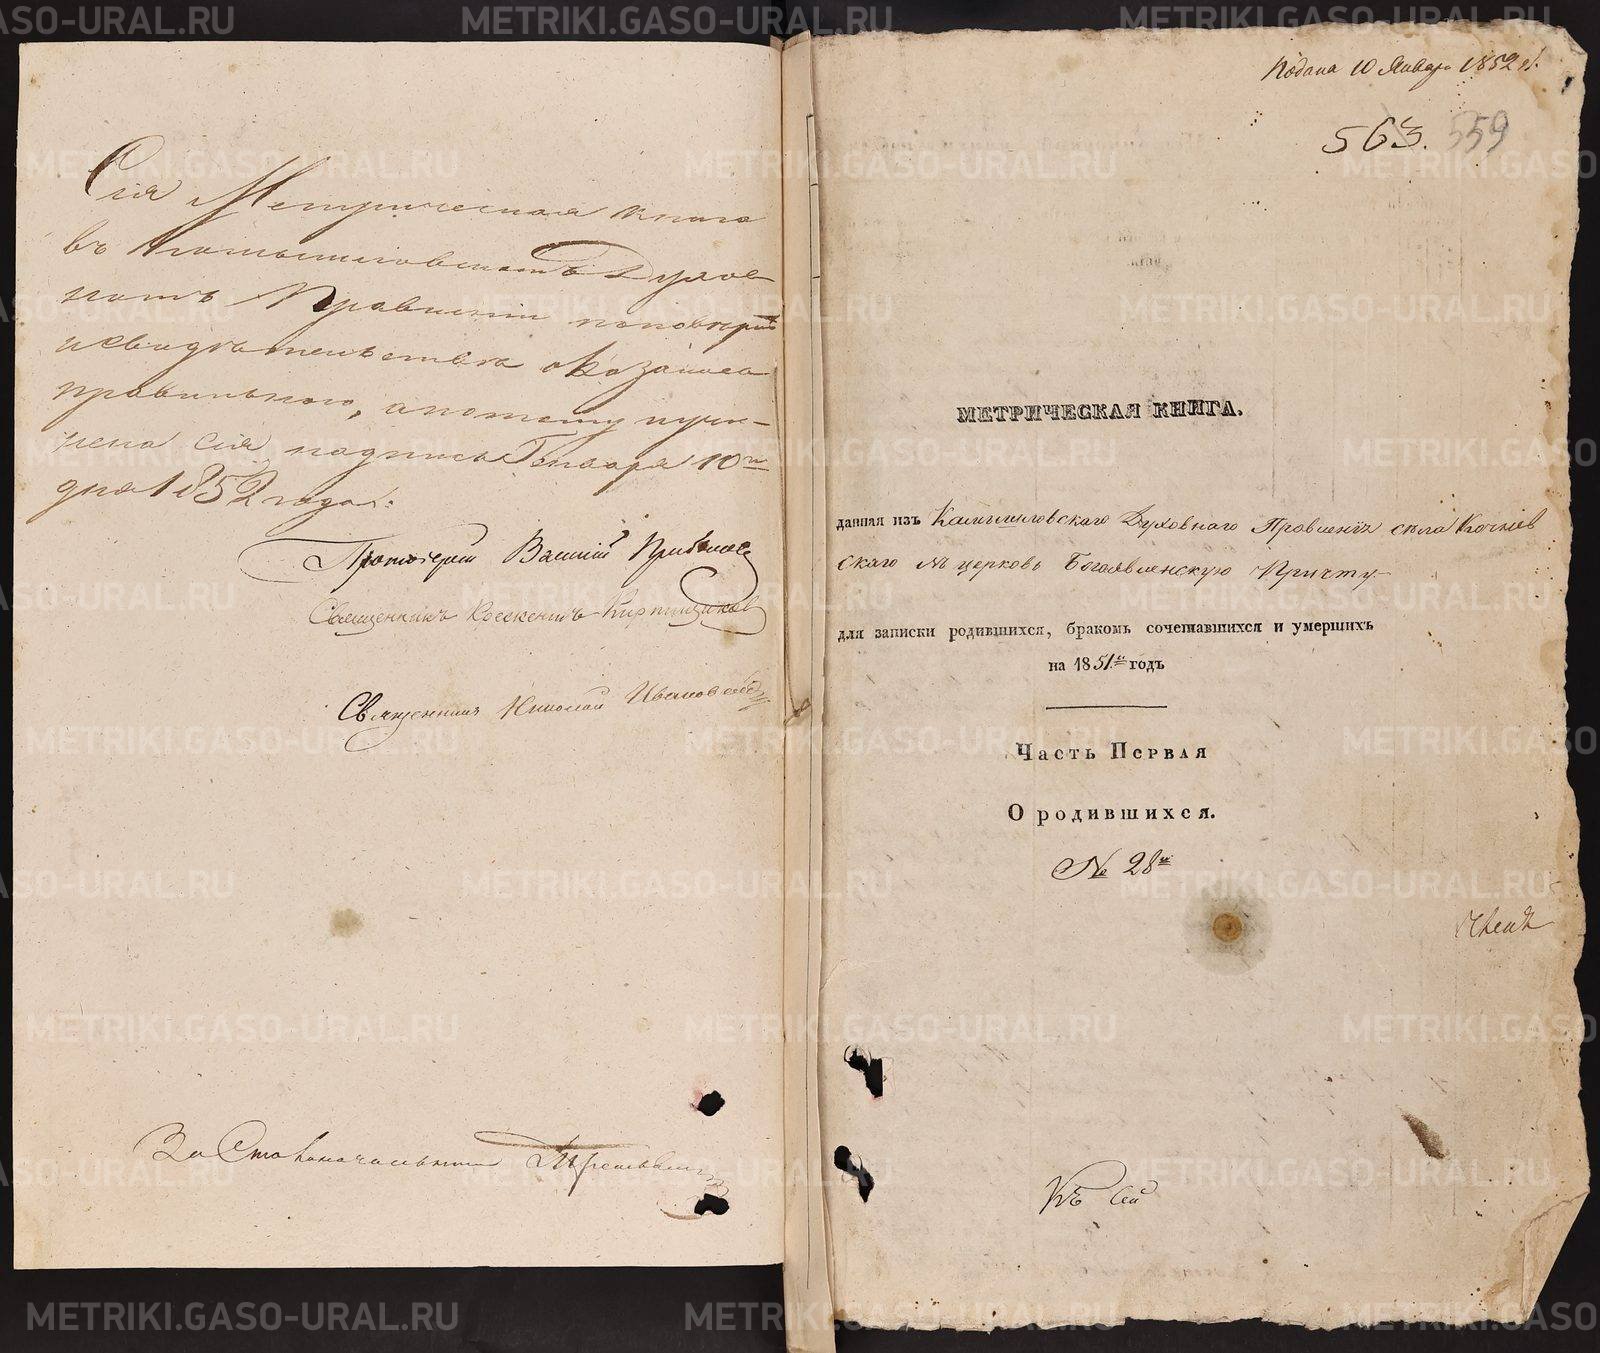 Сія Метрическая книга
въ Камышловскомъ Духов
номъ Правленіи по повѣркѣ
и свидѣтельствѣ оказалась
правильною, а потому и учи-
нена сія надпись Генваря 10го
дня 1852 года.
Протоіерей Василій
Священникъ
Священникъ Николай
За Столоначальника
Подана 10 Января 1852 г.
563. 559
МЕТРИЧЕСКАЯ КНИГА.
данная изъ Камышловскаго Духовнаго Правленія села Кочнев
скаго въ церковь Богоявленскую Причту
для записки родившихся, бракомъ сочетавшихся и умершихъ
на 1851й годъ
Часть Первая
О родившихся.
№ 28й
Къ сей